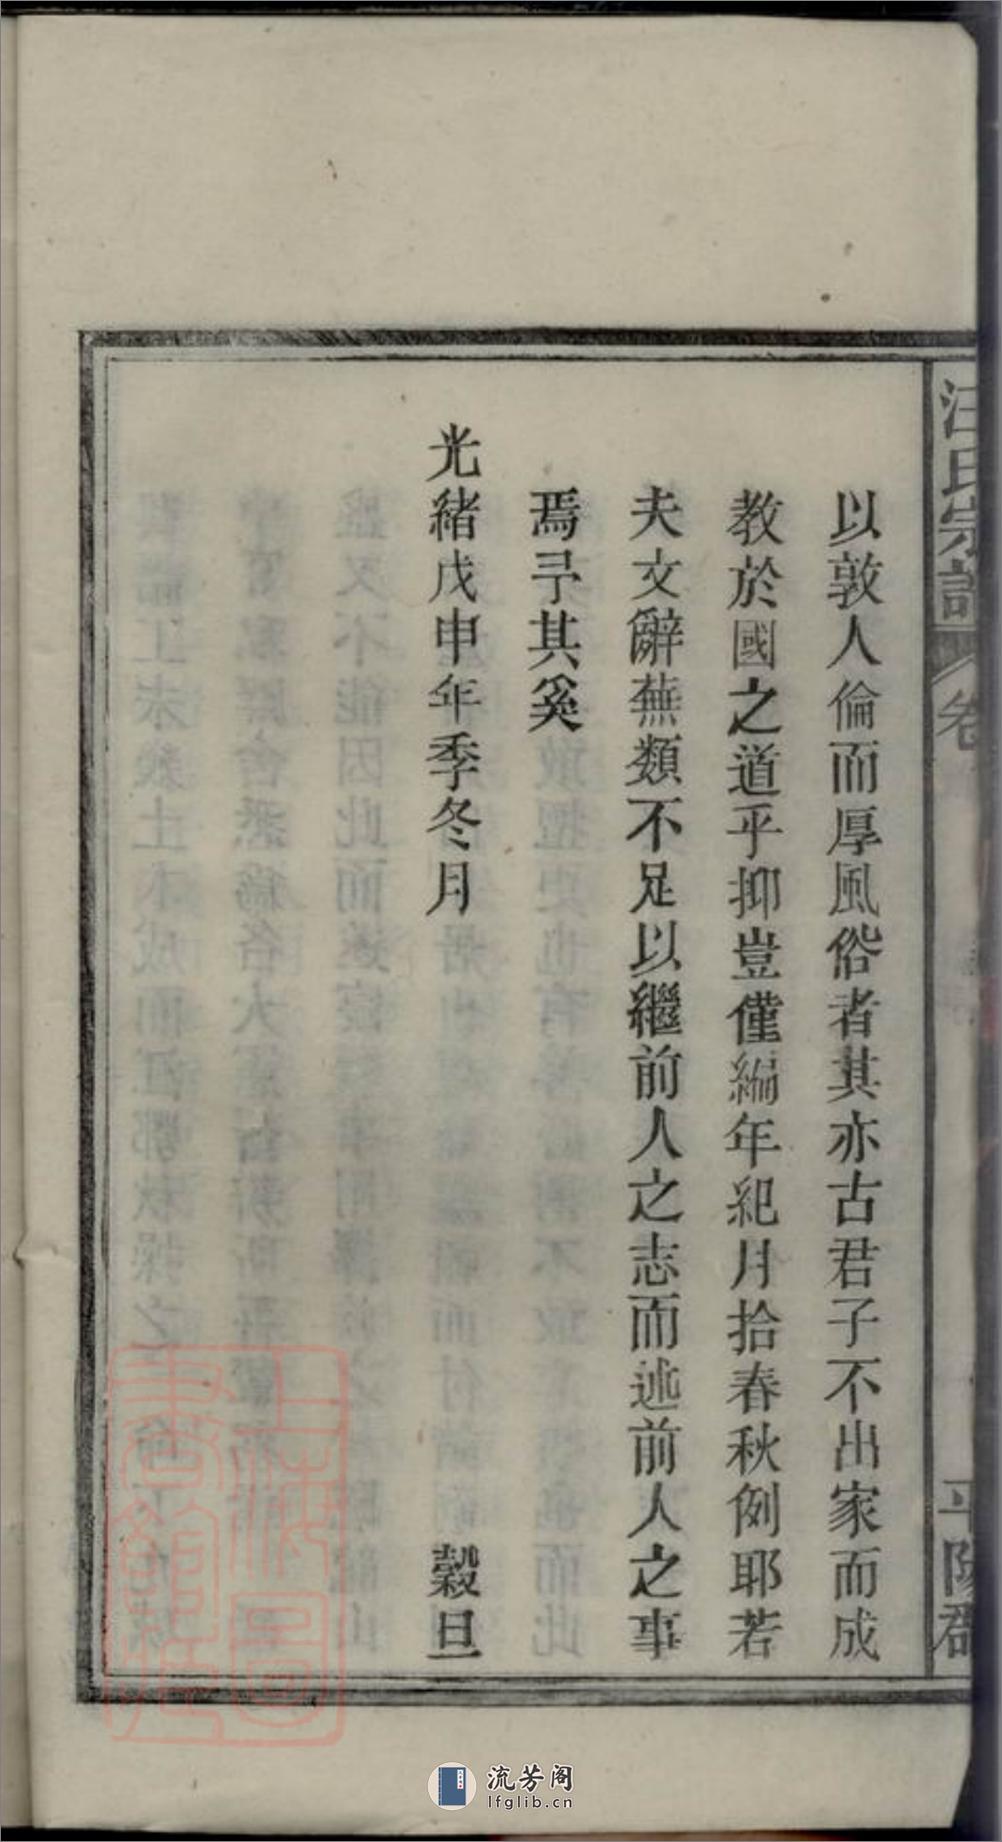 汪氏宗譜
卷
平陽郡
以敦人倫而厚風俗者其亦古君子不出家而成
教於國之道乎抑豈僅編年紀月拾春秋例耶若
夫文辭蕪類不足以繼前人之志而述前人之事
焉予其奚
光緒戊申年季冬月 穀旦
上海圖書館藏
流芳阁
lfglib.cn